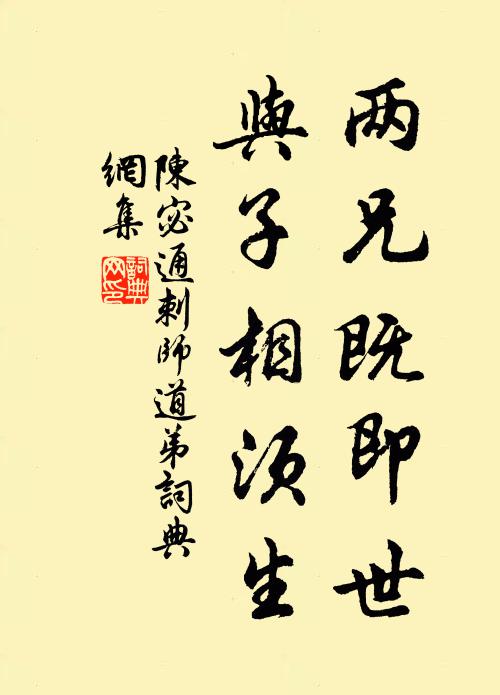 两兄既即世
與子相須生
陳宓通刺師道弟詞典
網集
詞典
网印